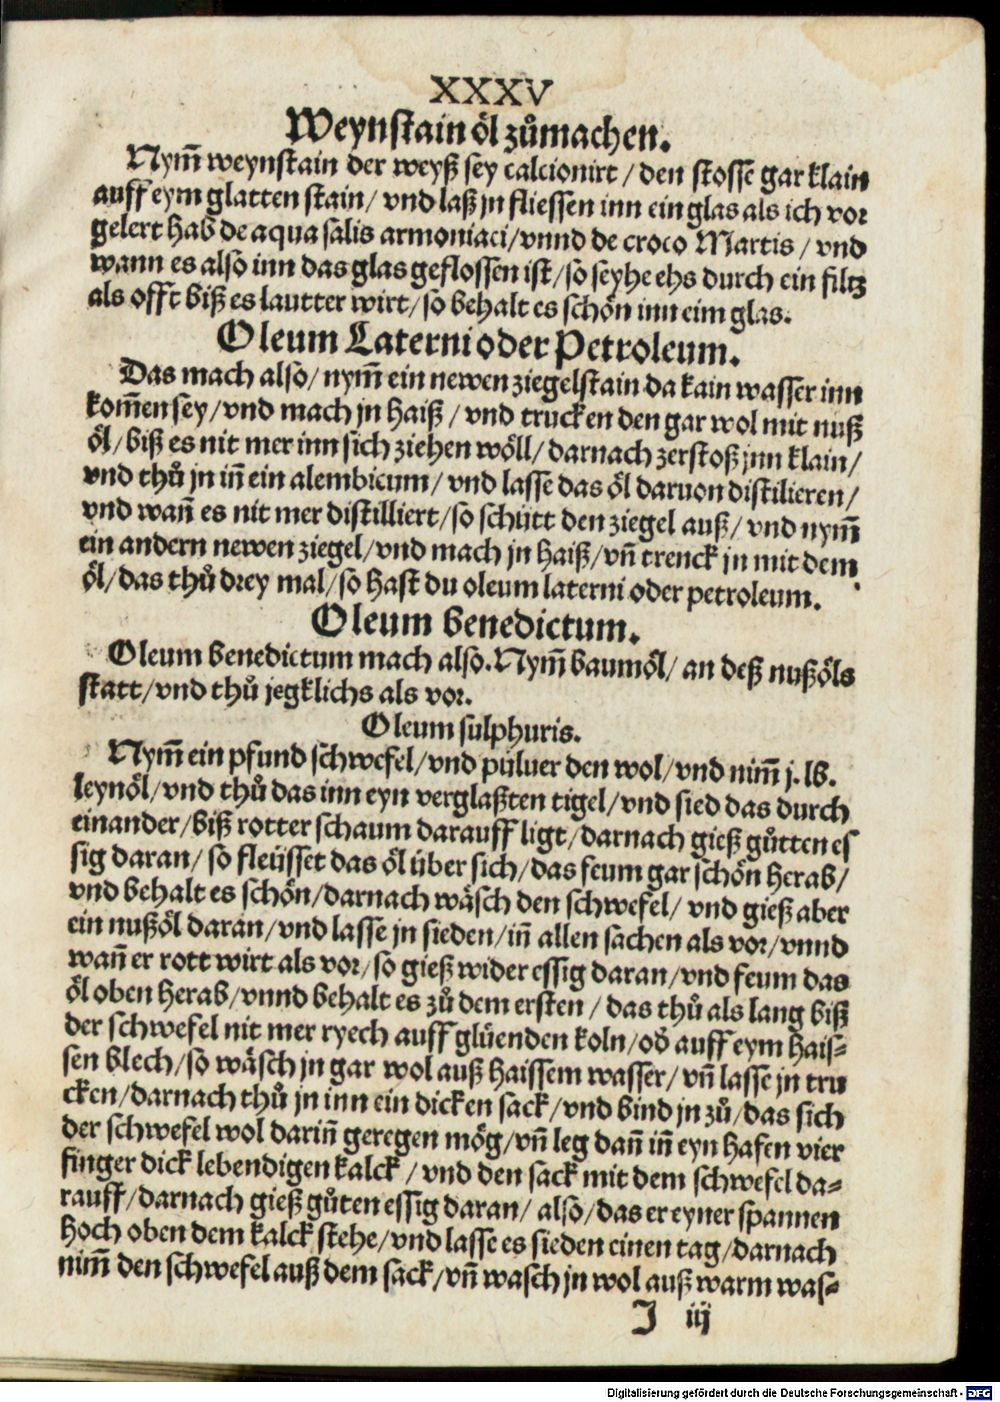 XXXV
Weynstain öl zůmachen.
Nym̃ weynstain der weyß sey calcionirt / den stosse gar klain
auff eym glatten stain / vnd laß jn fliessen inn ein glas als ich vor
gelert hab de aqua salis armoniaci / vnnd de croco Martis / vnd
wann es also inn das glas geflossen ist / so seyhe ehs durch ein filtz
als offt biß es lautter wirt / so behalt es schön inn eim glas.
Oleum Laterni oder Petroleum.
Das mach also / nym̃ ein newen ziegelstain da kain wasser inn
kom̃en sey / vnd mach jn haiß / vnd trucken den gar wol mit nuß
öl / biß es nit mer inn sich ziehen wöll / darnach zerstoß jnn klain /
vnd thů jn iñ ein alembicum / vnd lasse das öl daruon distilieren /
vnd wañ es nit mer distilliert / so schütt den ziegel auß / vnd nym̃
ein andern newen ziegel / vnd mach jn haiß / vñ trenck jn mit dem
öl / das thů drey mal / so hast du oleum laterni oder petroleum.
Oleum benedictum.
Oleum benedictum mach also. Nym̃ baumöl / an deß nußöls
statt / vnd thů jegklichs als vor.
Oleum sulphuris.
Nym̃ ein pfund schwefel / vnd puluer den wol / vnd nim̃ j. lb.
leynöl / vnd thů das inn eyn verglaßten tigel / vnd sied das durch
einander / biß rotter schaum darauff ligt / darnach gieß gůtten es
sig daran / so fleüsset das öl über sich / das feum gar schön herab /
vnd behalt es schön / darnach wäsch den schwefel / vnd gieß aber
ein nußöl daran / vnd lasse jn sieden / iñ allen sachen als vor / vnnd
wañ er rott wirt als vor / so gieß wider essig daran / vnd feum das
öl oben herab / vnnd behalt es zů dem ersten / das thů als lang biß
der schwefel nit mer ryech auff glüenden koln / od̕ auff eym hais⸗
sen blech / so wäsch jn gar wol auß haissem wasser / vñ lasse jn tru
cken / darnach thů jn inn ein dicken sack / vnd bind jn zů / das sich
der schwefel wol dariñ geregen mög / vñ leg dañ iñ eyn hafen vier
finger dick lebendigen kalck / vnd den sack mit dem schwefel da⸗
rauff / darnach gieß gůten essig daran / also / das er eyner spannen
hoch oben dem kalck stehe / vnd lasse es sieden einen tag / darnach
nim̃ den schwefel auß dem sack / vñ wasch jn wol auß warm was⸗
J iij
Digitalisierung gefördert durch die Deutsche Forschungsgemeinschaft - DFG